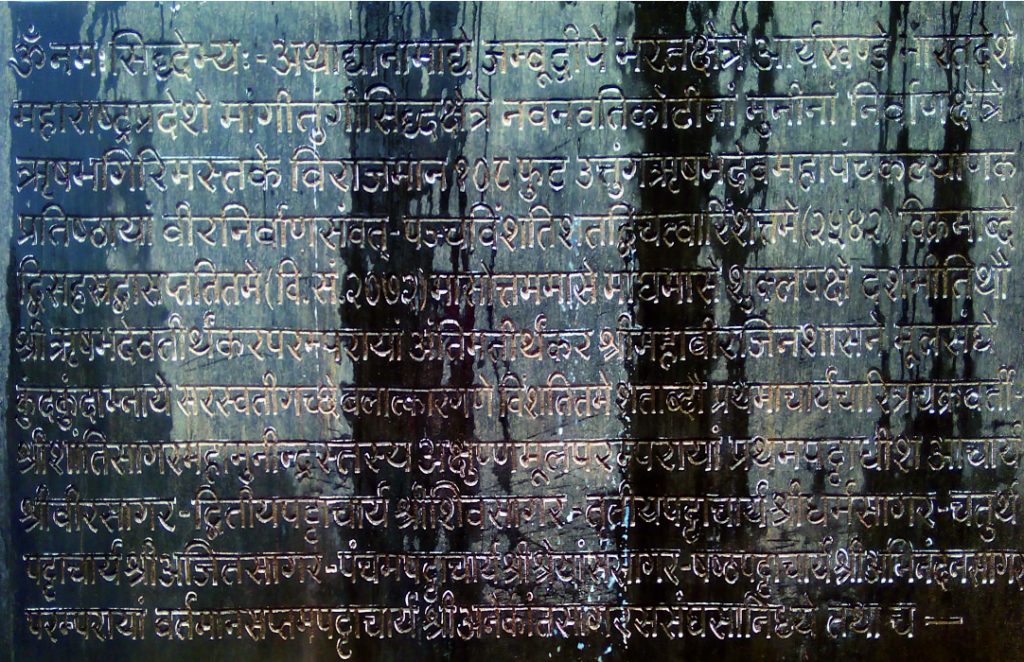 ॐ नमः सिद्धेभ्यः - अथाद्यानामाद्ये जम्बूद्वीपे भरतक्षेत्रे आर्यखण्डे भारतदेशे
महाराष्ट्रप्रदेशे मांगीतुंगीसिद्धक्षेत्रे नवनवतिकोटीनां मुनीनां निर्वाणक्षेत्रे
ऋषभगिरिमस्तके विराजमान १०८ फुट उत्तुंगऋषभदेवमहापंचकल्याणक
प्रतिष्ठायां वीरनिर्वाणसंवत्-पञ्चविंशतिशतद्विचत्वारिंशत्तमे(२५४२) विक्रमाब्दे
द्विसहस्रद्वासप्ततितमे(वि.सं.२०७२)मासोत्तममासे माघमासे शुल्लपक्षे दशमीतिथौ
श्रीऋषभदेवतीर्थंकरपरम्परायां अंतिमतीर्थंकर श्रीमहावीरजिनशासने मूलसंघे
कुंदकुंदाम्नाये सरस्वतीगच्छे बलात्कारगणे विंशतितमे शताब्दौ प्रथमाचार्यचारित्रचक्रवर्ती-
श्रीशांतिसागरमहामुनीन्द्रस्तस्य अक्षुण्णमूलपरम्परायां प्रथमपट्टाधीश आचार्य
श्रीवीरसागर-द्वितीयपट्टाचार्य श्रीशिवसागर-तृतीयपट्टाचार्य श्रीधर्मसागर-चतुर्थ
पट्टाचार्य श्रीअजितसागर-पंचमपट्टाचार्य श्रीश्रेयांससागर-षष्ठपट्टाचार्य
परम्परायां वर्तमानसप्तमपट्टाचार्य श्रीअनेकांतसागरससंघसानिध्ये तथा च ।